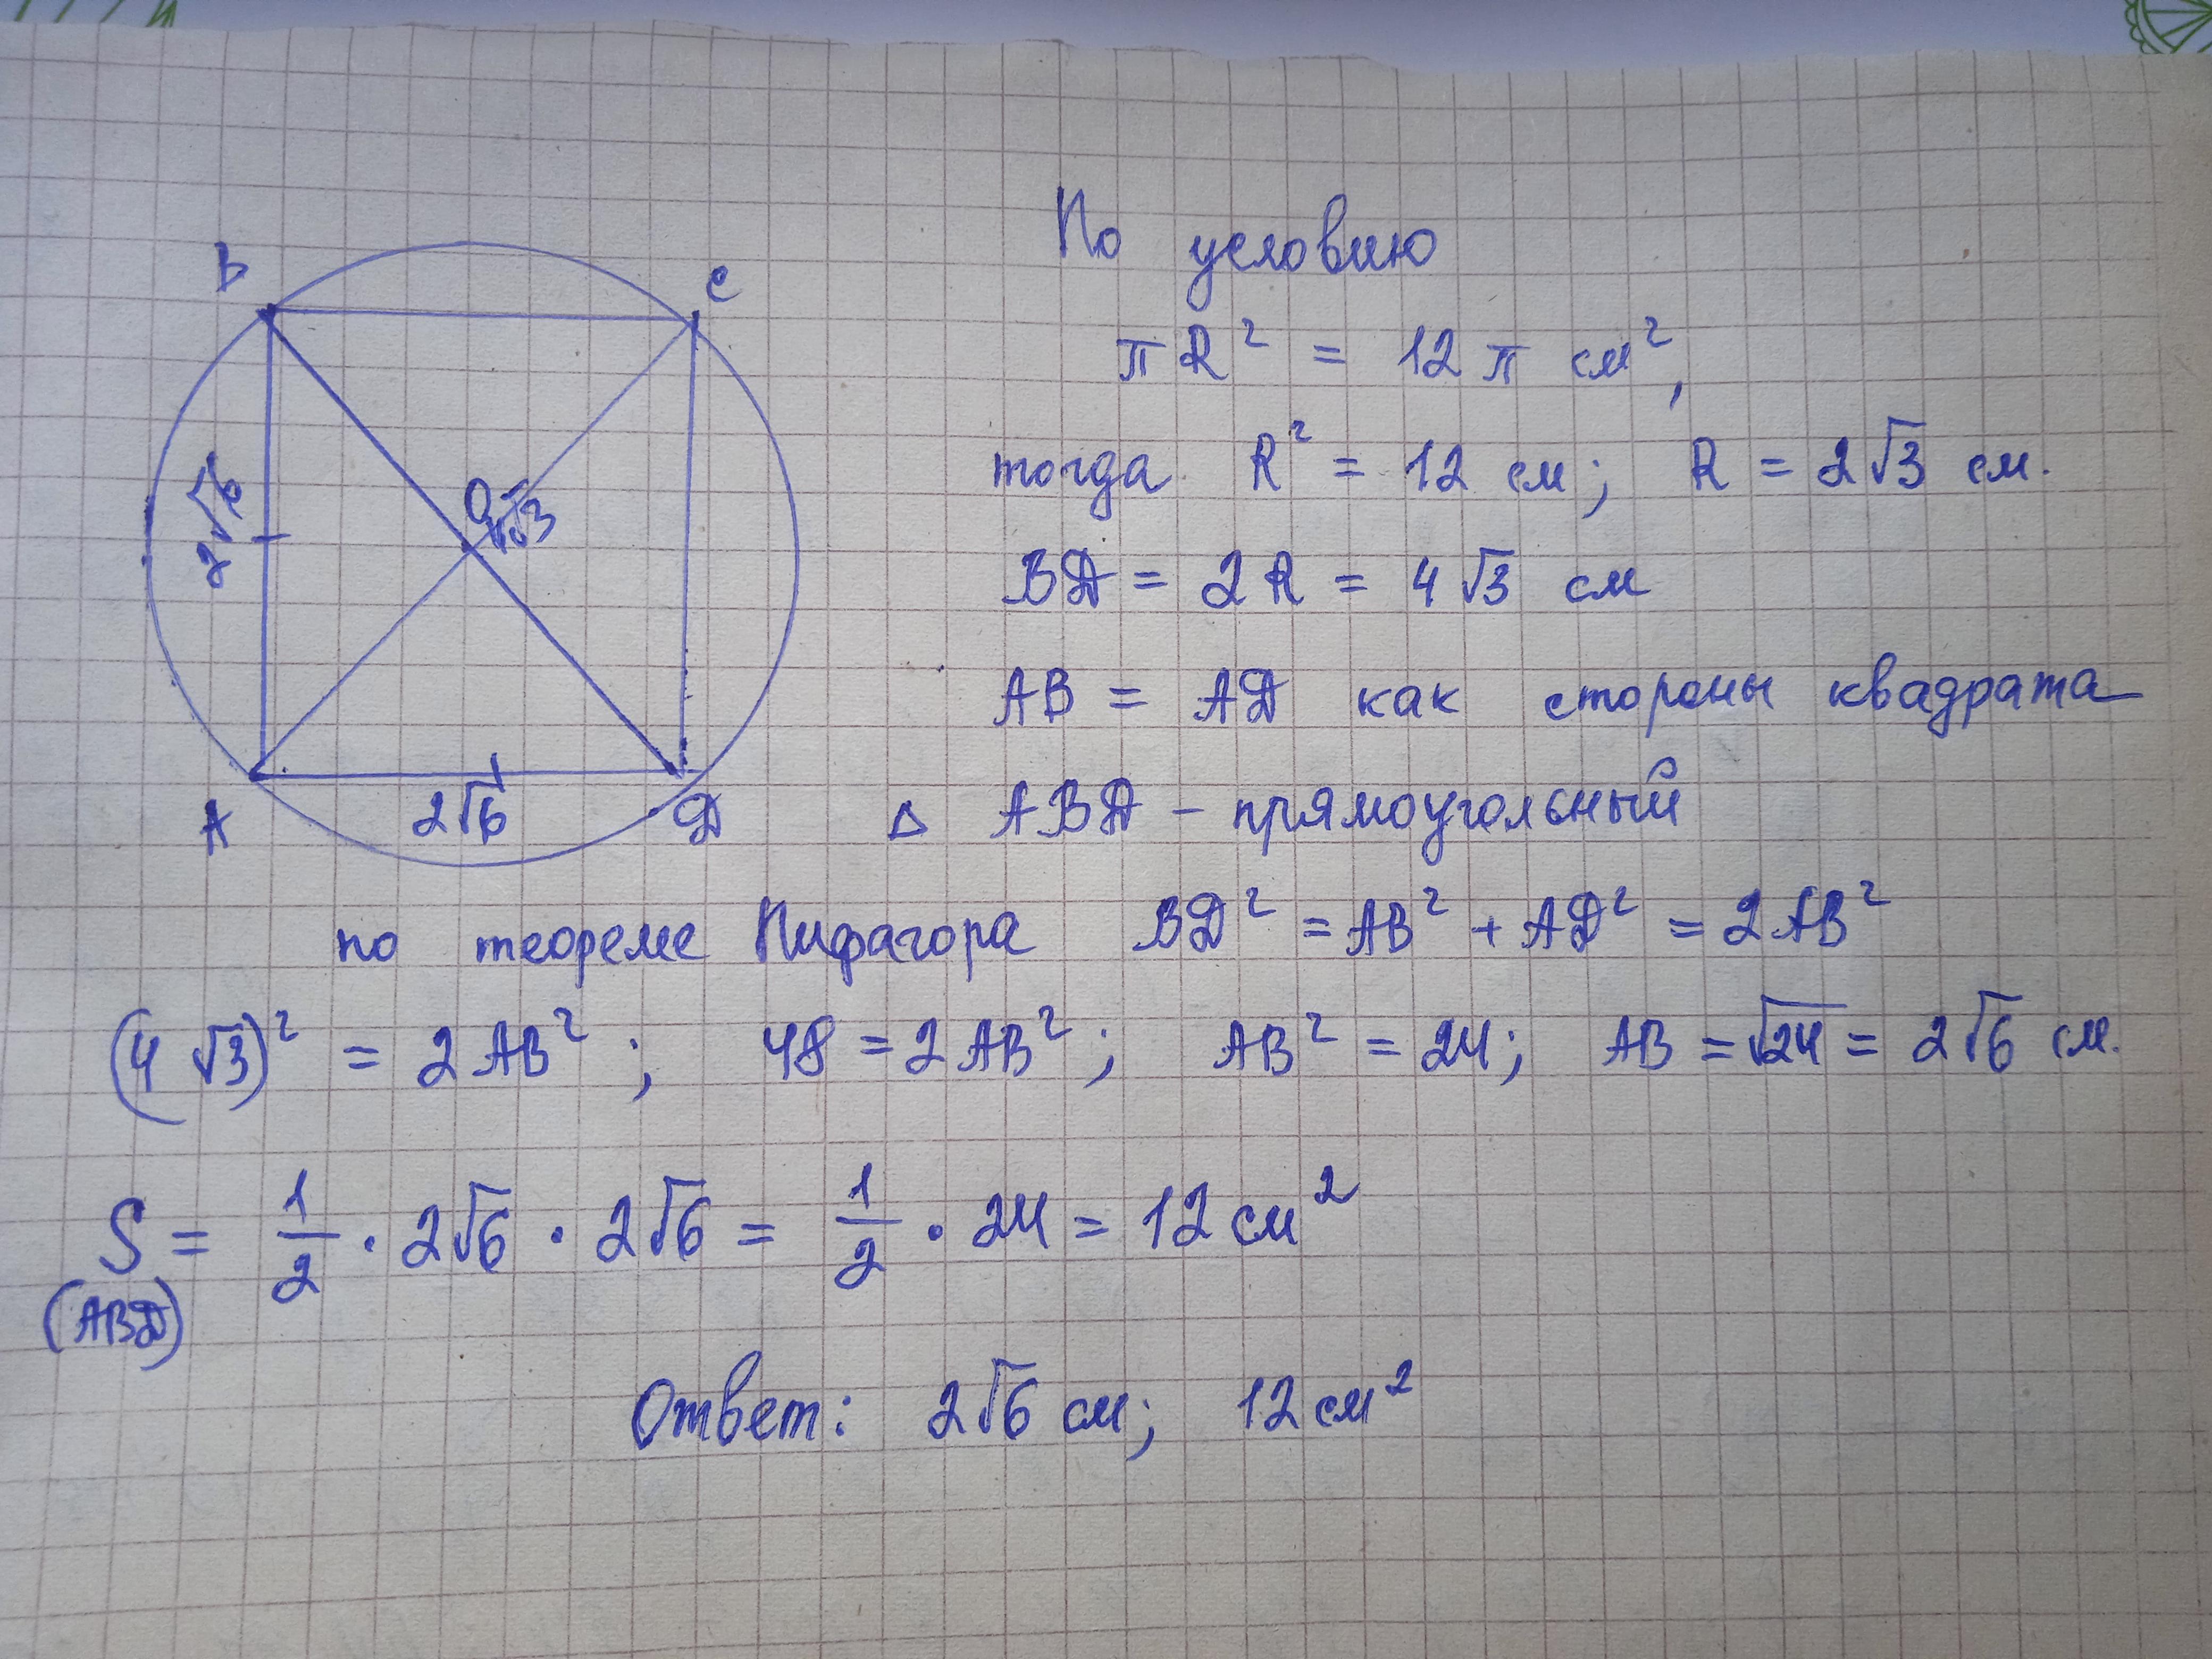 B
C
2√6
O
4√3
A
2√6
Д
По условию
πR² = 12π см²,
тогда R² = 12 см; R = 2√3 см.
BД = 2R = 4√3 см
AB = AД как стороны квадрата
△ ABД – прямоугольный
по теореме Пифагора BД² = AB² + AД² = 2AB²
(4√3)² = 2AB²; 48 = 2AB²; AB² = 24; AB = √24 = 2√6 см.
S = 1/2 · 2√6 · 2√6 = 1/2 · 24 = 12 см²
(ABД)
Ответ: 2√6 см; 12 см²